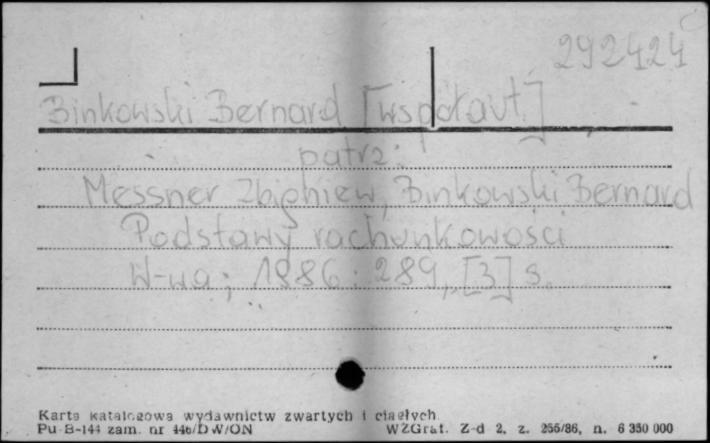 292424 C
Binkowski Bernard [współaut.]
patrz:
Messner Zbigniew, Binkowski Bernard
Podstawy rachunkowości
W-wa ; 1986. 289, [3] s.
Karta katalogowa wydawnictw zwartych i ciągłych
Pu-B-144 zam. nr 446/DW/ON WZGraf. Z-d 2, z. 256/86, n. 6 350 000